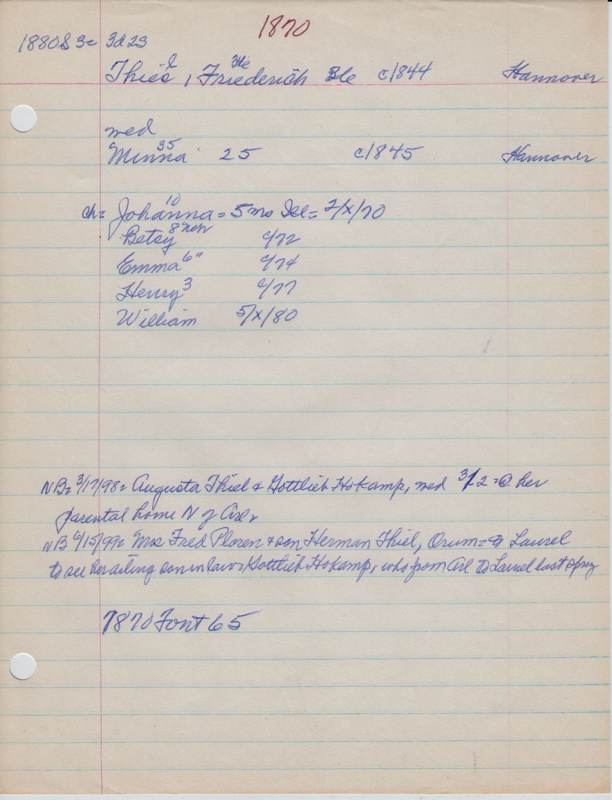 1870
1880 S Sc 3d 23
Thies l, Friederich 36 Ble c/1844 Hannover
med
Minna 35 25 c/1845 Hannover
ch= Johanna 10 = 5 mo Ill = 2/x/70
Betsy 8 Neb c/72
Emma 6 " c/74
Henry 3 c/77
William 5/x/80
NB= 3/17/98= Augusta Thiel & Gottlieb Hokamp, med 3/2 = @ her
parental home N of Arl.
NB 6/15/99= Mrs Fred Ploren & son Herman Thiel, Orum = to Laurel
to see her ailing son in law = Gottlieb Hokamp, who from Arl to Laurel last spring
1870 Font 65